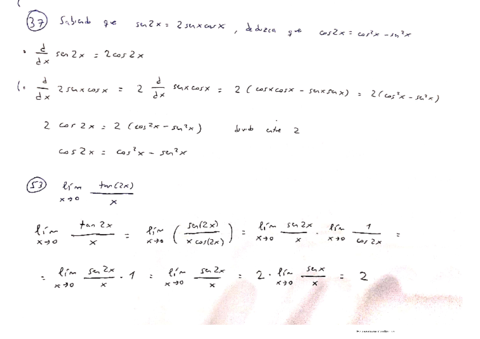 37 Sabendo que sen2x = 2senxcosx, deduza que cos2x = cos²x - sen²x
• d/dx sen2x = 2cos2x
(• d/dx 2senxcosx = 2 d/dx senxcosx = 2(cosxcosx - senxsenx) = 2(cos²x - sen²x)
2 cos2x = 2(cos²x - sen²x) 2
cos2x = cos²x - sen²x
53 lim x→0 tan(2x)/x
lim x→0 tan2x/x = lim x→0 (sen(2x)/x cos(2x)) = lim x→0 sen2x/x · lim x→0 1/cos2x =
= lim x→0 sen2x/x · 1 = lim x→0 sen2x/x = 2 · lim x→0 senx/x = 2